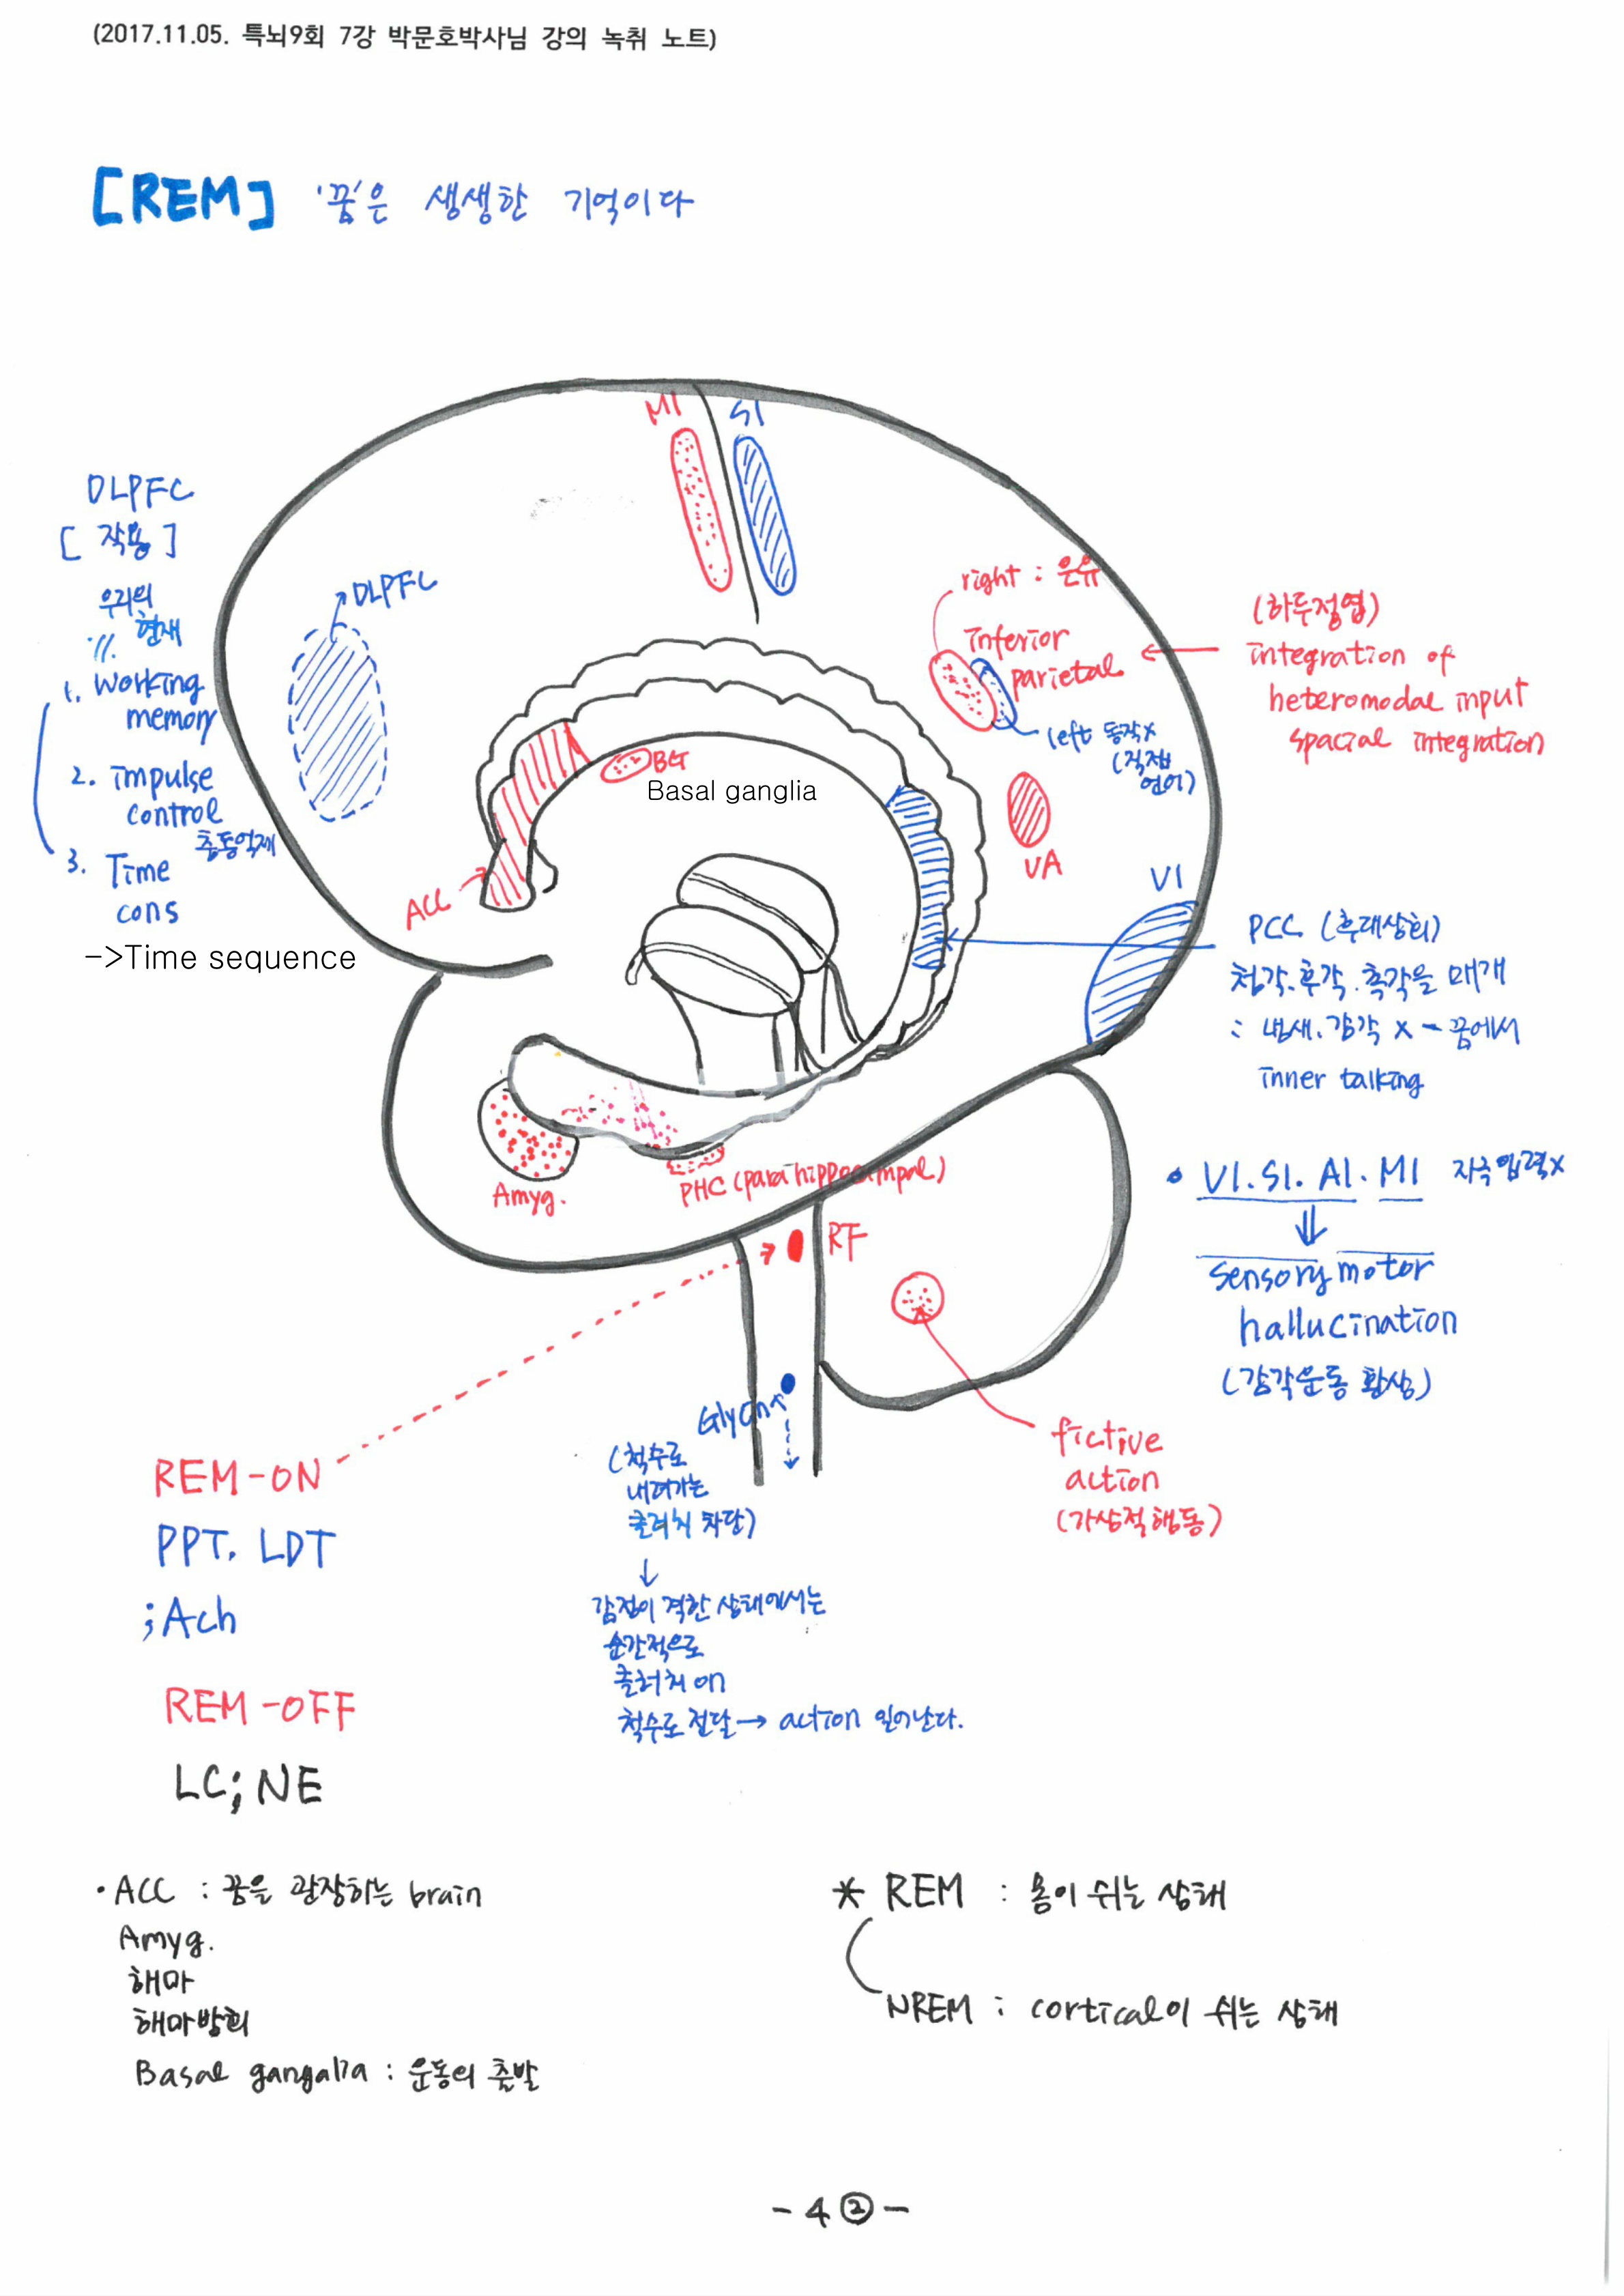 (2017.11.05. 특뇌9회 7강 박문호박사님 강의 녹취 노트)
[REM] '꿈'은 생생한 기억이다
M1
S1
DLPFC
[ 작용 ]
우리의
현재
1. working
memory
2. impulse
control
충동억제
3. Time
cons
->Time sequence
DLPFC
right : 은유
inferior
parietal
left 동작x
(직접
언어)
(하두정엽)
integration of
heteromodal input
spacial integration
BG
Basal ganglia
ACC
VA
V1
PCC (후대상회)
청각.후각.촉각을 매개
: 냄새.감각 x - 꿈에서
inner talking
Amyg.
PHC (para hippocampal)
RF
• V1. S1. A1. M1 자극입력x
⇓
sensory motor
hallucination
(감각운동 환상)
Glycn
(척수로
내려가는
클러치 차단)
↓
감정이 격한 상태에서는
순간적으로
클러치 on
척수로 전달 → action 일어난다.
fictive
action
(가상적행동)
REM-ON
PPT. LDT
;Ach
REM-OFF
LC; NE
• ACC : 꿈을 관장하는 brain
Amyg.
해마
해마방회
Basal gangalia : 운동의 출발
* REM : 몸이 쉬는 상태
NREM : cortical이 쉬는 상태
- 4 ② -